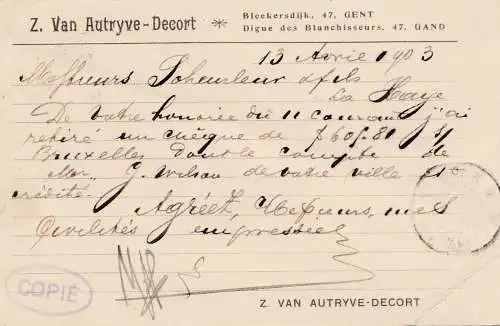 Z. Van Autryve-Decort
Bleekersdijk, 47, GENT
Digue des Blanchisseurs, 47, GAND
13 Avril 1903
Messieurs Scheurleer & fils
La Haye
De votre honorée du 11 courant j'ai
retiré un chèque de f 605.81 s/
Bruxelles dont le compte de
Mr. G. Wilson de votre ville est
crédité.
Agréez, Messieurs, mes
Civilités empressées
COPIÉ
Z. VAN AUTRYVE-DECORT